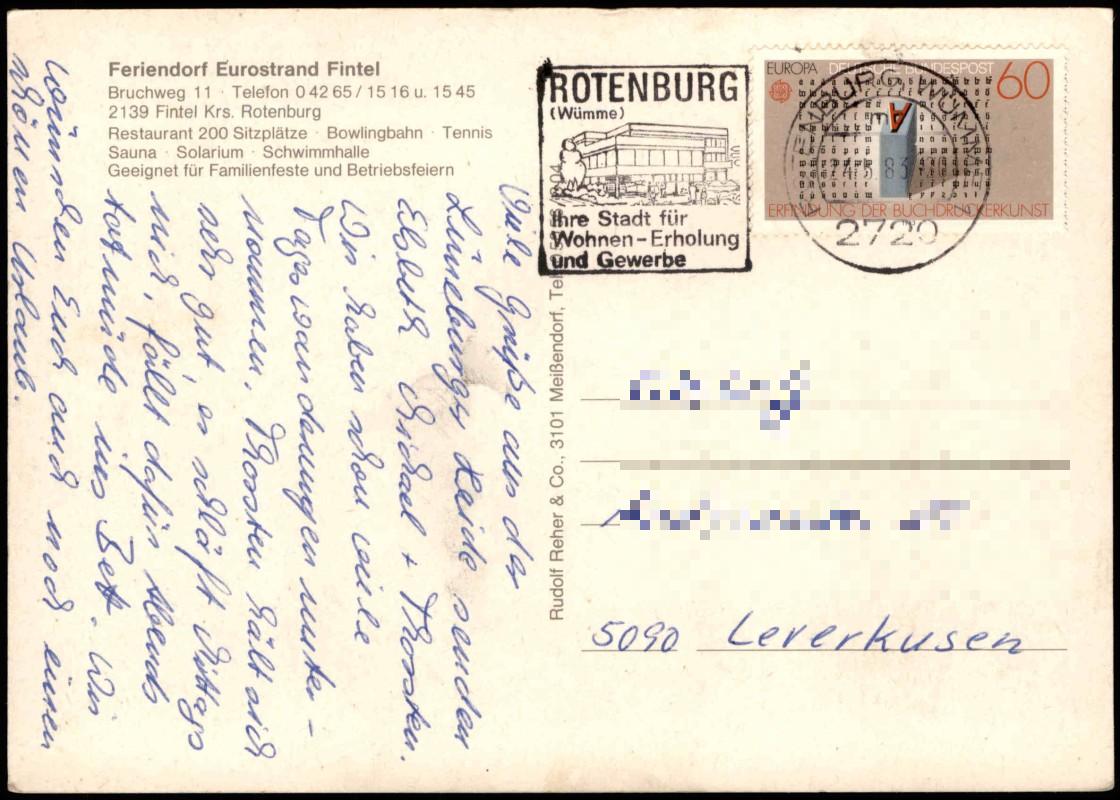 Feriendorf Eurostrand Fintel
Bruchweg 11 · Telefon 0 42 65 / 15 16 u. 15 45
2139 Fintel Krs. Rotenburg
Restaurant 200 Sitzplätze · Bowlingbahn · Tennis
Sauna · Solarium · Schwimmhalle
Geeignet für Familienfeste und Betriebsfeiern
ROTENBURG
(Wümme)
Ihre Stadt für
Wohnen-Erholung
und Gewerbe
EUROPA DEUTSCHE BUNDESPOST 60
A
ERFINDUNG DER BUCHDRUCKERKUNST
5.83
2720
Viele Grüße aus der
Lüneburger Heide senden
Elsbeth Michael + Thorsten.
Wir haben schon viele
Tageswanderungen unter-
nommen. Thorsten hält sich
sehr gut, er schläft Mittags
nicht, fällt dafür Abends
todmüde ins Bett. Wir
wünschen Euch auch noch einen
schönen Urlaub.
Rudolf Reher & Co., 3101 Meißendorf, Tel
5090 Leverkusen